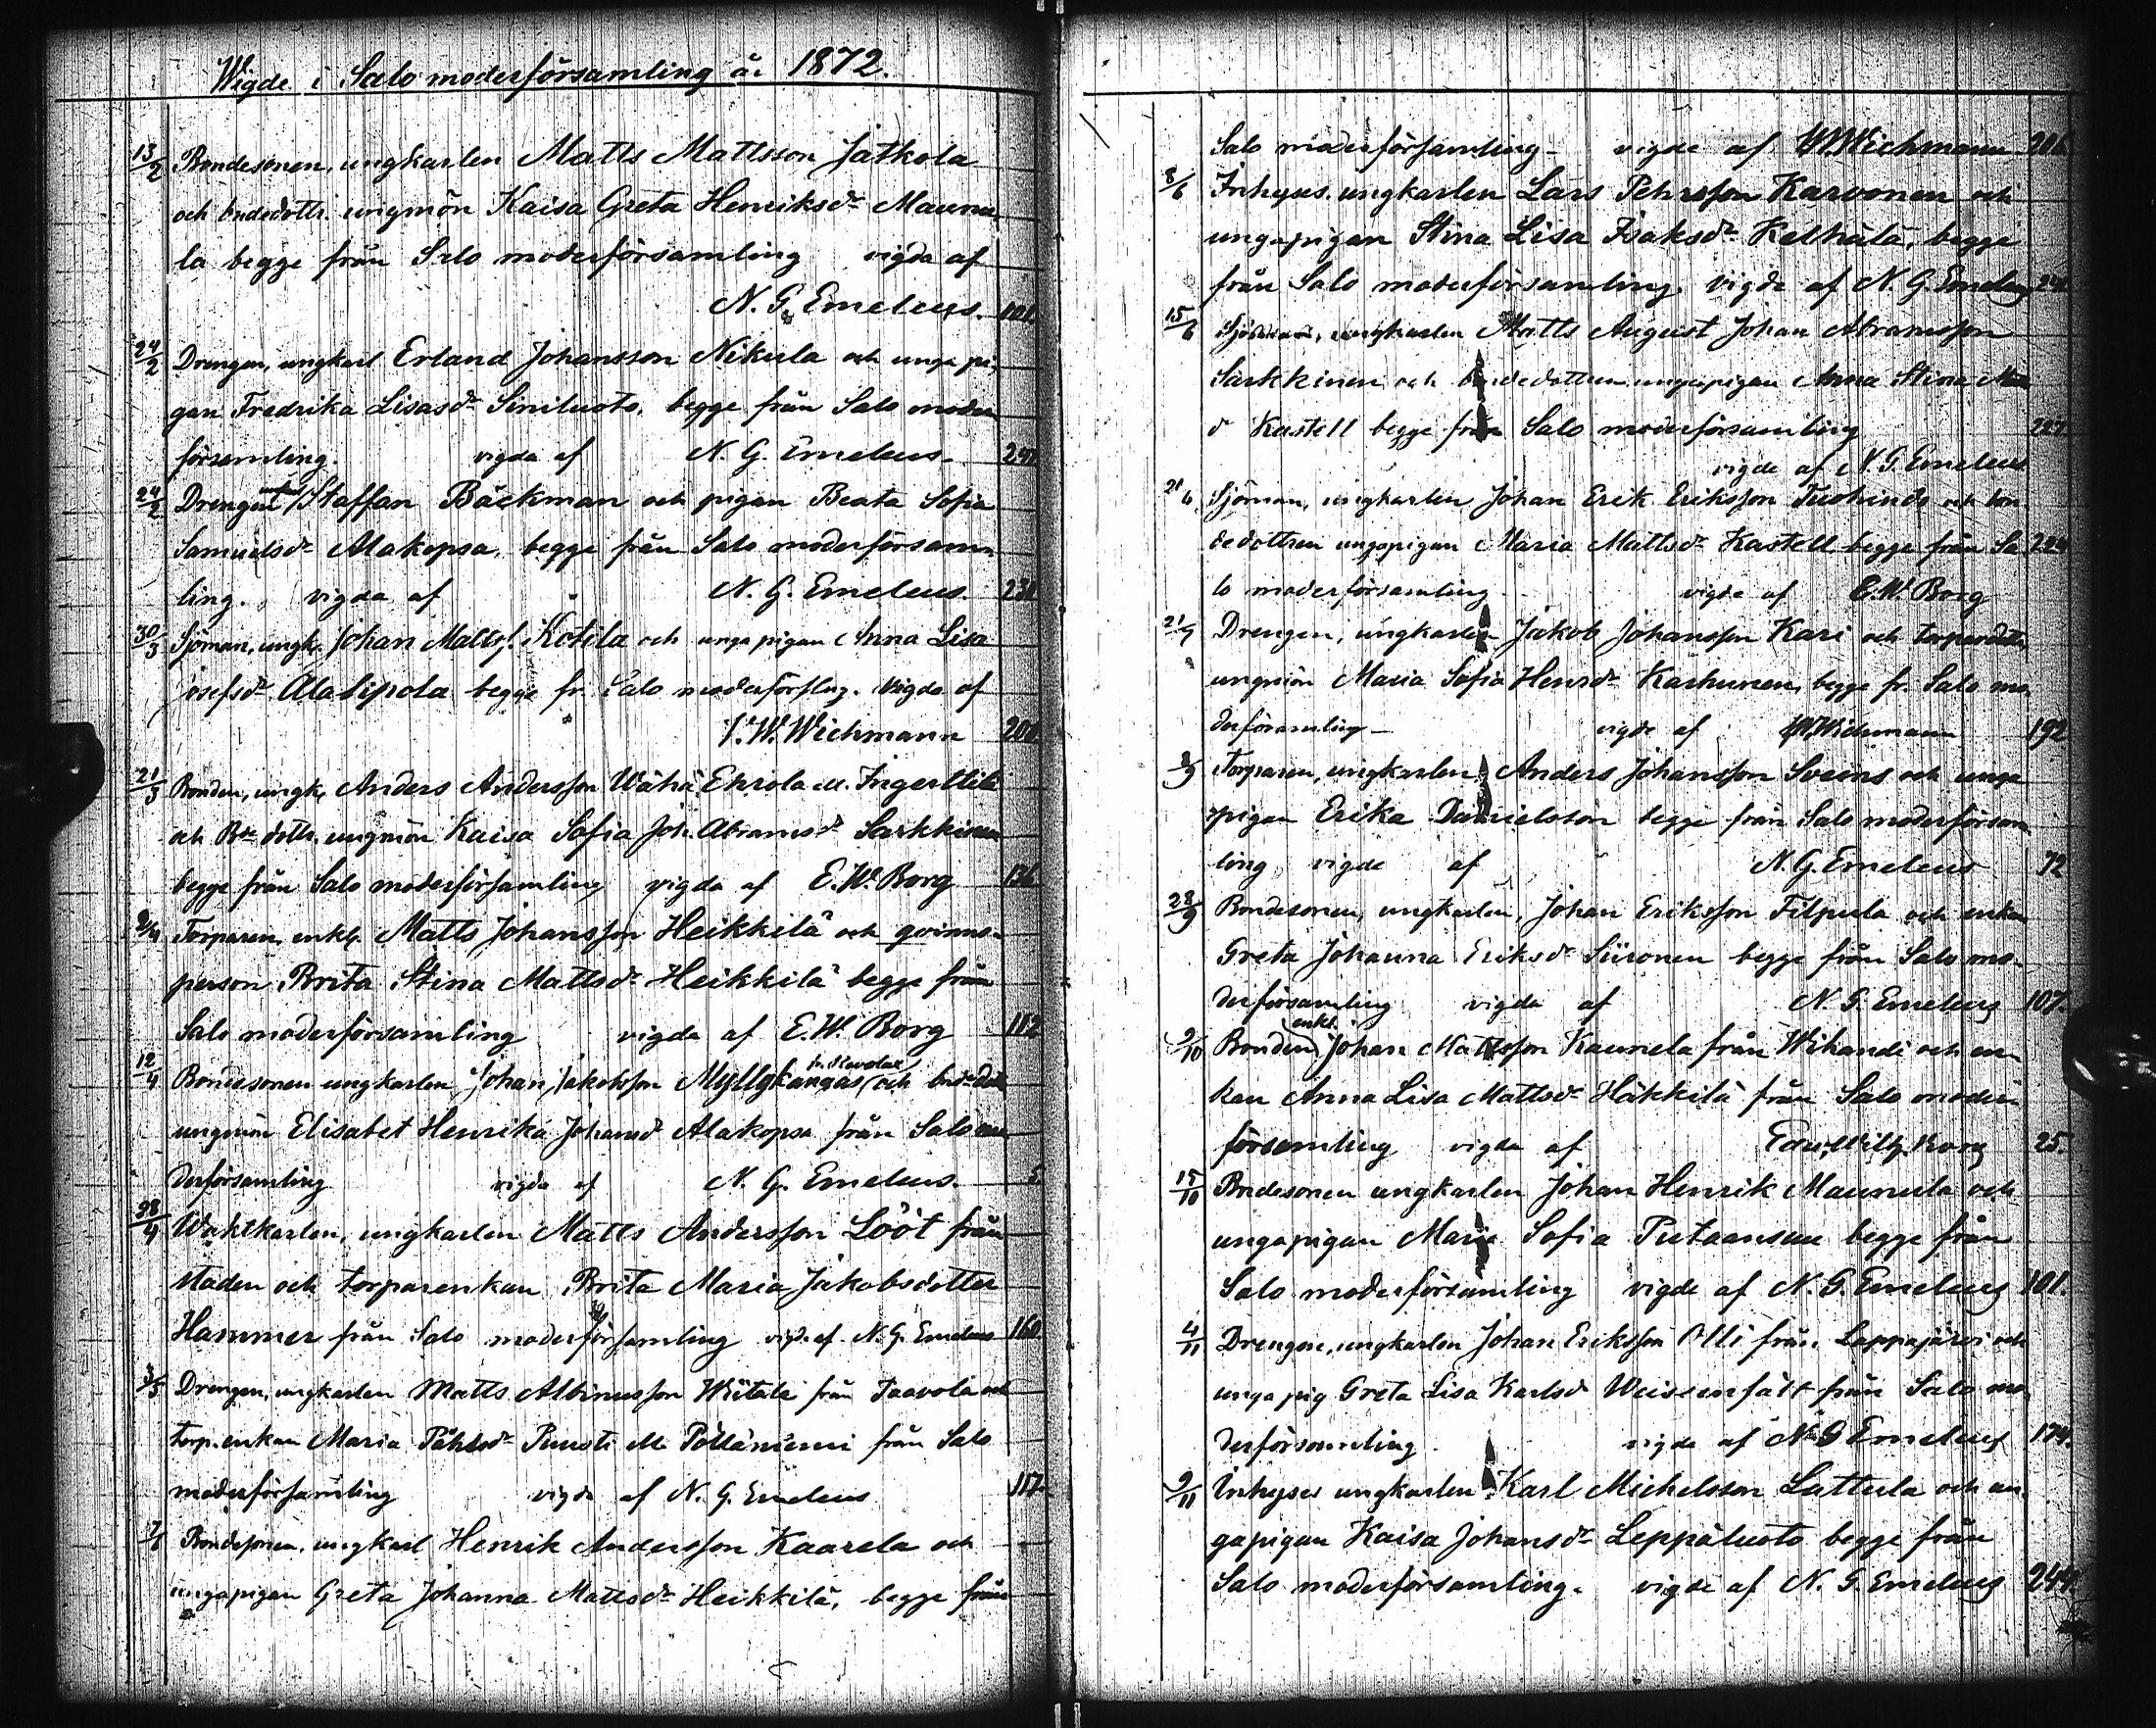 Wigde i Salo moderförsamling år 1872.
13/2 Bondesonen, ungkarlen Matts Mattsson Jatkola
och bndedottr. ungmön Kaisa Greta Henriksdr Maunu-
la begge från Salo moderförsamling vigda af
N. G. Emeleus. 101
24/2 Drengen, ungkarl Erland Johansson Nikula och unga pi-
gan Fredrika Lisasdr Siniluoto, begge från Salo moder
församling vigda af N. G. Emeleus.
24/2 Drengen Staffan Bäckman och pigan Beata Sofia
Samuelsdr Alakopsa, begge från Salo moderförsam-
ling. vigda af N. G. Emeleus.
30/3 Sjöman, ungk. Johan Matts. Kotila och unga pigan Anna Lisa
Josefsdr Alalipola begge fr. Salo moderförslng. vigda af
V. W. Wichmann
21/3 Bonden, ungk. Anders Andersson Wähä Ehrola Ingerttilä
och Bde dottr. ungmön Kaisa Sofia Joh. Abramsdr Sarkkinen
begge från Salo moderförsamling vigda af E. W. Borg 136
2/4 Torparen, enkl. Matts Johansson Heikkilä och qvinns-
person Brita Stina Mattsdr Heikkilä begge från
Salo moderförsamling vigda af E. W. Borg 112
fr. Revolax
12/4 Bondesonen ungkarlen Johan Jakobsson Myllykangas och
ungmön Elisabet Henrika Johansdr Alakopsa från Salo mo
derförsamling vigda af N. G. Emeleus. 5.
28/4 Waktkarlen, ungkarlen Matts Andersson Lööt från
staden och torparenkan Brita Maria Jakobsdotter
Hammer från Salo moderförsamling vigd. af N. G. Emeleus 160
3/5 Drengen, ungkarlen Matts Albinusson Wiitala från Paavola och
torp. enkan Maria Påhlsdr Puusti Pölläniemi från Salo
moderförsamling vigda af N. G. Emeleus 117.
7/6 Bondesonen, ungkarl Henrik Andersson Kaarela och
ungapigan Greta Johanna Mattsdr Heikkilä, begge från
Salo moderförsamling - vigde af V. W. Wichmann 206
8/6 Inhyses. ungkarlen Lars Pehrsson Karvonen och
ungapigan Stina Lisa Isaksdr Kelhälä, begge
från Salo moderförsamling vigde af N. G. Emeleus
15/6 Sjöman, ungkarlen Matts August Johan Abramsson
Sarkkinen och bondedottren ungapigan Anna Stina
d Kastell begge från Salo moderförsamling 227.
vigde af N. G. Emeleus
Sjöman, ungkarlen Johan Erik Eriksson Tuohinds och bon-
dedottren ungapigan Maria Mattsdr Kastell begge från Sa-
lo moderförsamling vigde af E. W. Borg
21/7 Drengen, ungkarlen Jakob Johansson Kari och
ungmön Maria Sofia Henrdr Karhunen, begge fr. Salo mo-
derförsamling - vigde af V. W. Wichmann 192
Torparen, ungkarlen Anders Johansson Sveins och unga
pigan Erika Danielsson begge från Salo moderförsam-
ling vigde af N. G. Emeleus 72
28/9 Bondesonen, ungkarlen, Johan Eriksson Filpula och enkan
Greta Johanna Eriksdr Siironen begge från Salo mo-
derförsamling vigda af N. G. Emeleus 107.
enkl.
9/10 Bonden Johan Mattsson Kaunela från Wihandi och en-
kan Anna Lisa Mattsdr Häkkilä från Salo moder
församling vigda af Edv. Wilh. Borg 25.
15/10 Bondesonen ungkarlen Johan Henrik Maunula och
ungapigan Maria Sofia Putaansuu begge från
Salo moderförsamling vigde af N. G. Emeleus 101.
4/11 Drengen, ungkarlen Johan Eriksson Olli från Lappajärvi och
unga pig Greta Lisa Karlsd Weissenfält från Salo mo-
derförsamling vigda af N G Emeleus 174.
9/11 Inhyses ungkarlen Karl Michelsson Lattula och un-
gapigan Kaisa Johansdr Leppäluoto begge från
Salo moderförsamling. vigde af N. G. Emeleus 244